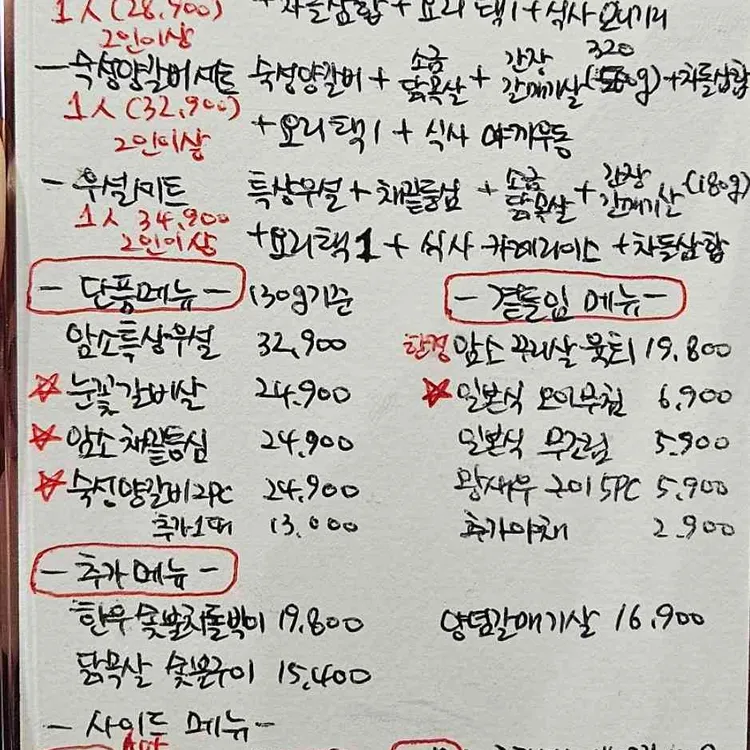 1人 (28,900) + 차돌삼합 + 요리 택1 + 식사
2인이상
- 숙성양갈비세트 숙성양갈비 + 소금 닭목살 + 간장 갈매기살 (320g) + 차돌삼합
1人 (32,900) + 요리택1 + 식사 야끼우동
2인이상
- 우설세트 특상우설 + 채끝등심 + 소금 닭목살 + 간장 갈매기살 (180g)
1人 34,900 + 요리택1 + 식사 카레라이스 + 차돌삼합
2인이상
- 단품메뉴 - 130g기준
암소특상우설 32,900
눈꽃갈비살 24,900
암소채끝등심 24,900
숙성양갈비2PC 24,900
추가1대 13,000
- 곁들임 메뉴 -
한정 암소 꾸리살 육회 19,800
일본식 오이무침 6,900
일본식 무조림 5,900
왕새우 구이 5PC 5,900
추가야채 2,900
- 추가메뉴 -
한우숯불차돌박이 19,800
양념갈매기살 16,900
닭목살 숯불구이 15,400
- 사이드 메뉴 -